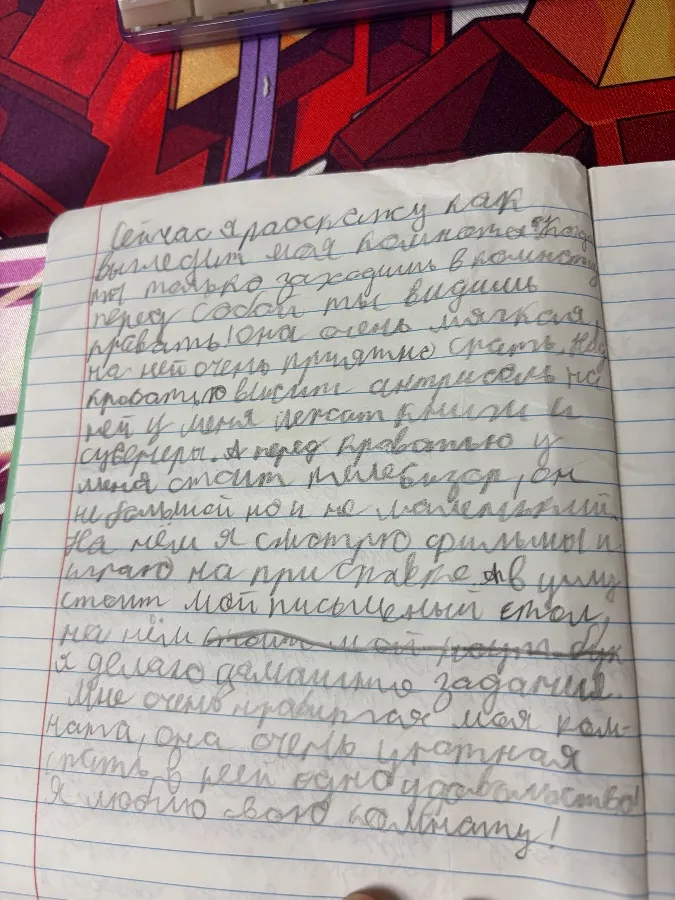 Сейчас я раоскажу как
выгледит моя комната. Когда
ты только заходишь в комноту
перед собой ты видишь
кравать! она очень мягкая,
на ней очень приятно спать. Над
кроватью висит антрисоль на
ней у меня лежат книги и
сувенеры. А перед краватью у
меня стоит телевизор, он
не большой но и не маленький.
На нём я смотрю фильмы и
играю на приставке. А в углу
стоит мой писменый стол,
на нём стоит мой ноутбук
я делаю дамашние задание.
Мне очень нравиться моя ком-
ната, она очень уютная
спать в ней одно удавольство!
Я люблю свою комнату!